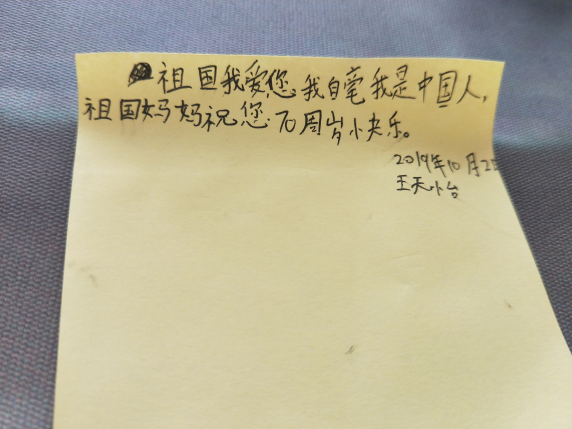 祖国我爱您,我自毫我是中国人,
祖国妈妈祝您70周岁快乐。
2019年10月2日
王天怡